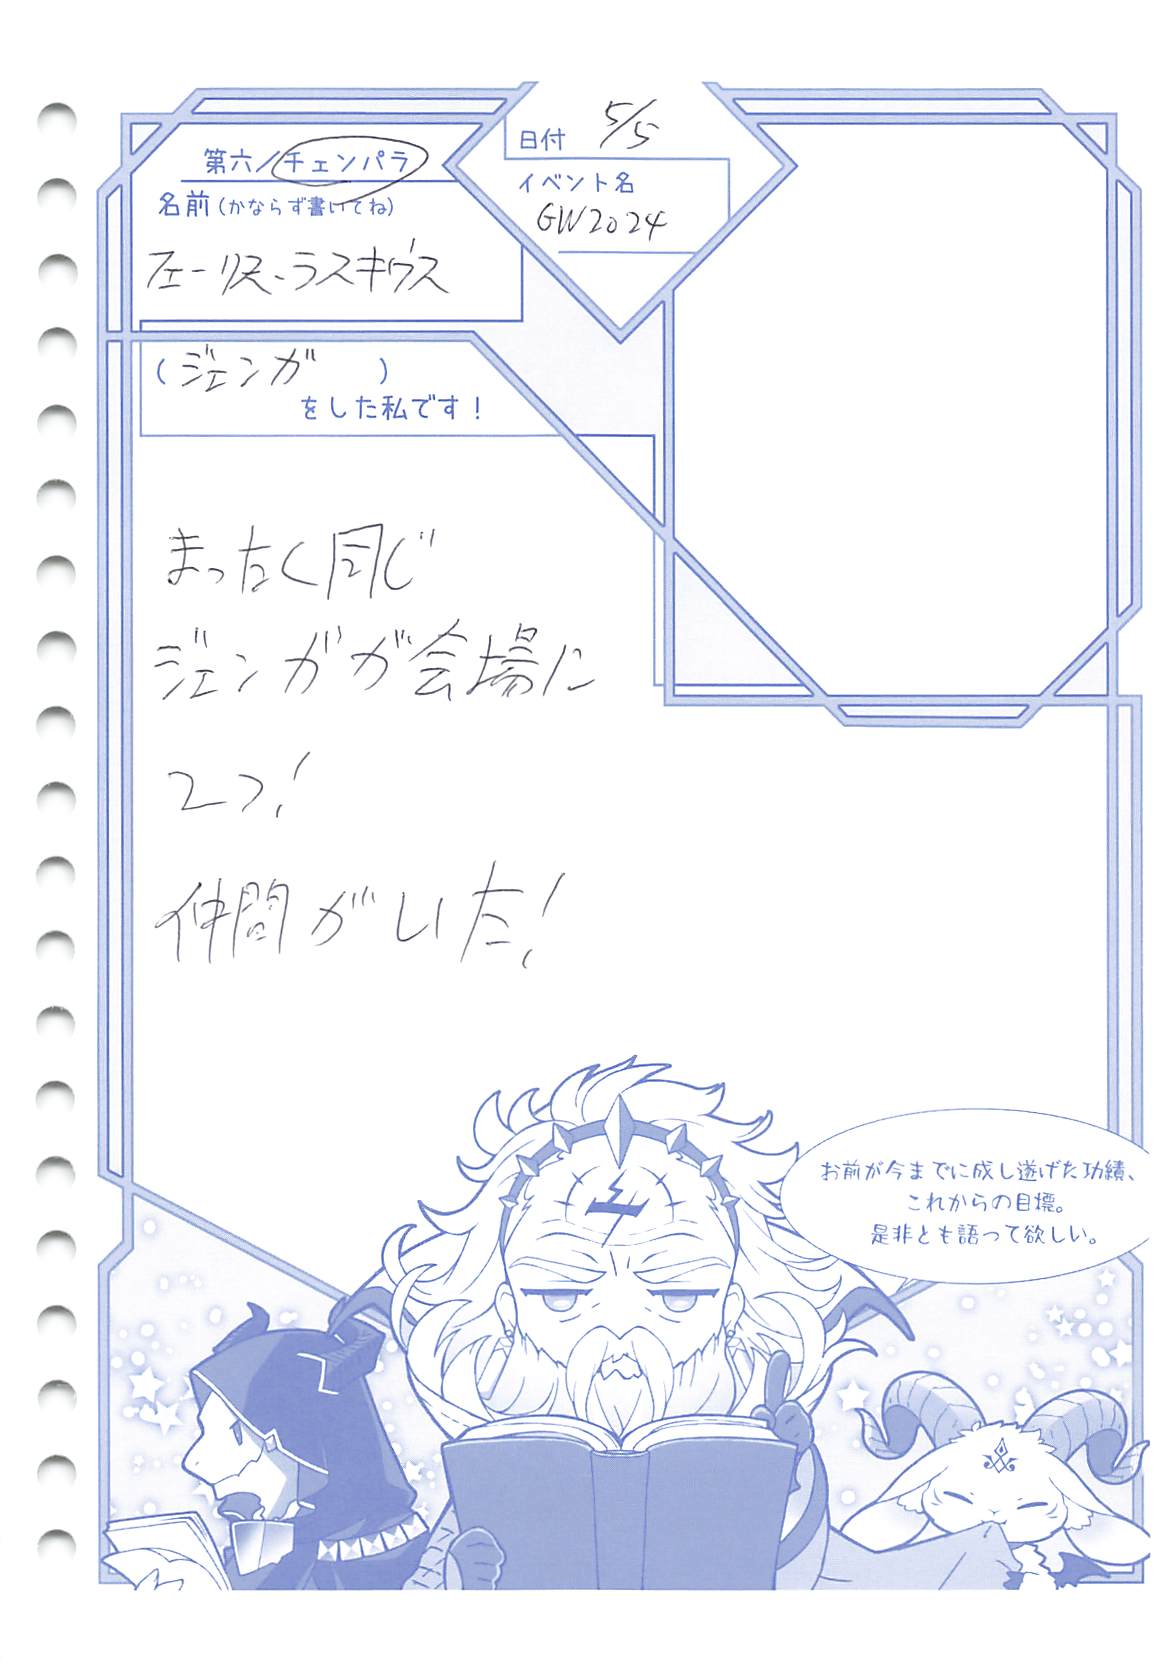 第六/チェンパラ
日付 5/5
イベント名
GW2024
名前(かならず書いてね)
フェーリス・ラスキヴス
(ジェンガ)
をした私です!
まったく同じ
ジェンガが会場に
2つ!
仲間がいた!
お前が今までに成し遂げた功績、
これからの目標。
是非とも語って欲しい。